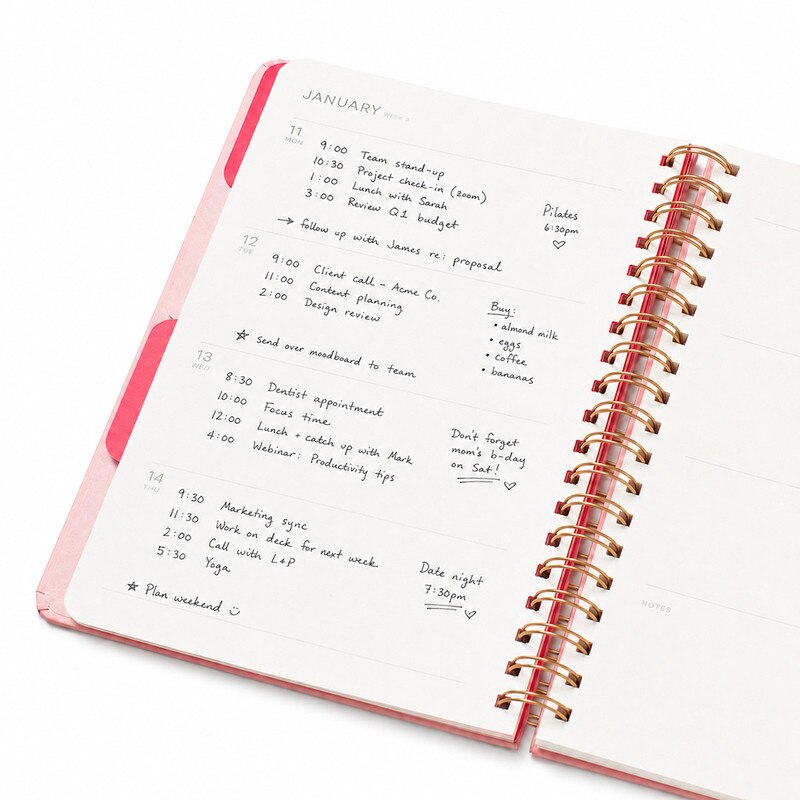 JANUARY WEEK 3
11
MON
9:00 Team stand-up
10:30 Project check-in (zoom)
1:00 Lunch with Sarah
3:00 Review Q1 budget
→ follow up with James re: proposal
Pilates
6:30pm
♡
12
TUE
9:00 Client call - Acme Co.
11:00 Content planning
2:00 Design review
☆ send over moodboard to team
Buy:
• almond milk
• eggs
• coffee
• bananas
13
WED
8:30 Dentist appointment
10:00 Focus time
12:00 Lunch + catch up with Mark
4:00 Webinar: Productivity tips
Don't forget
mom's b-day
on Sat! ♡
14
THU
9:30 Marketing sync
11:30 Work on deck for next week
2:00 Call with L+P
5:30 Yoga
☆ Plan weekend ☺
Date night
7:30pm
♡
NOTES